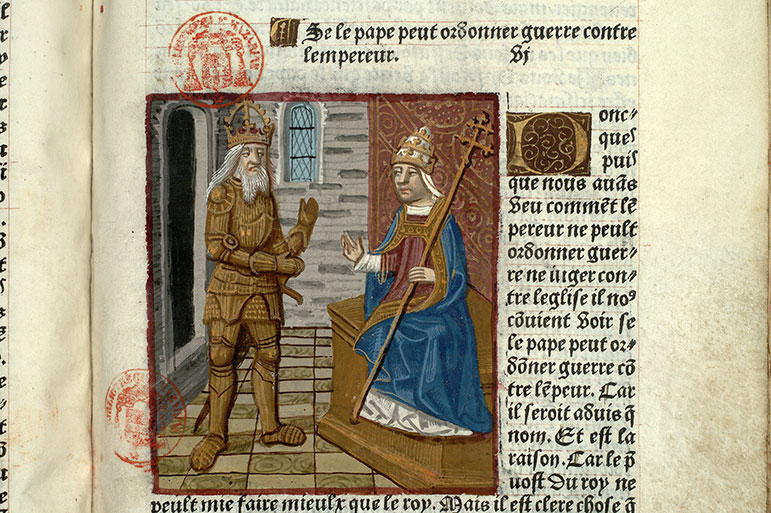 Se le pape peut ordonner guerre contre
lempereur. Vj
Donc
ques
puis
que nous auãs
Veu commẽt lẽ
pereur ne peult
ordonner guer
re ne iuger con
tre leglise il noꝰ
cõuient Voir se
le pape peut or-
dõner guerre cõ
tre lẽpeur. Car
il seroit aduis q̃
nom. Et est la
raison. Car le p̃
uost du roy ne
peult mie faire mieulx que le roy. Mais il est clere chose q̃